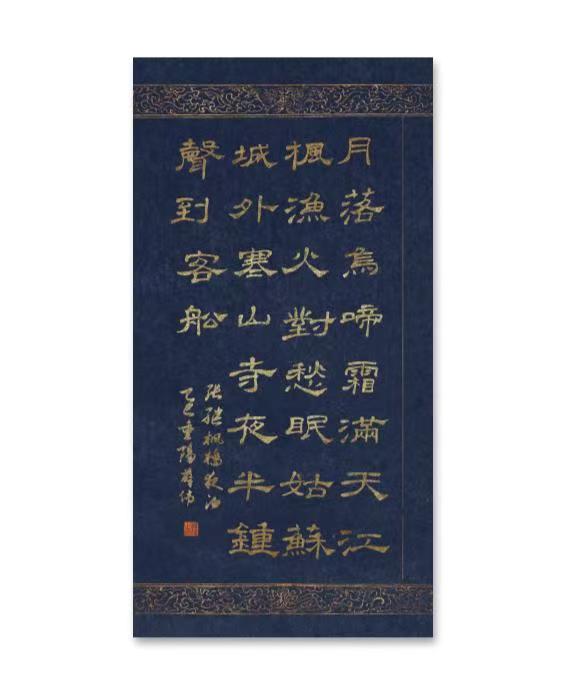 月落烏啼霜滿天江
楓漁火對愁眠姑蘇
城外寒山寺夜半鍾
聲到客舩
張繼楓橋夜泊
乙巳重陽